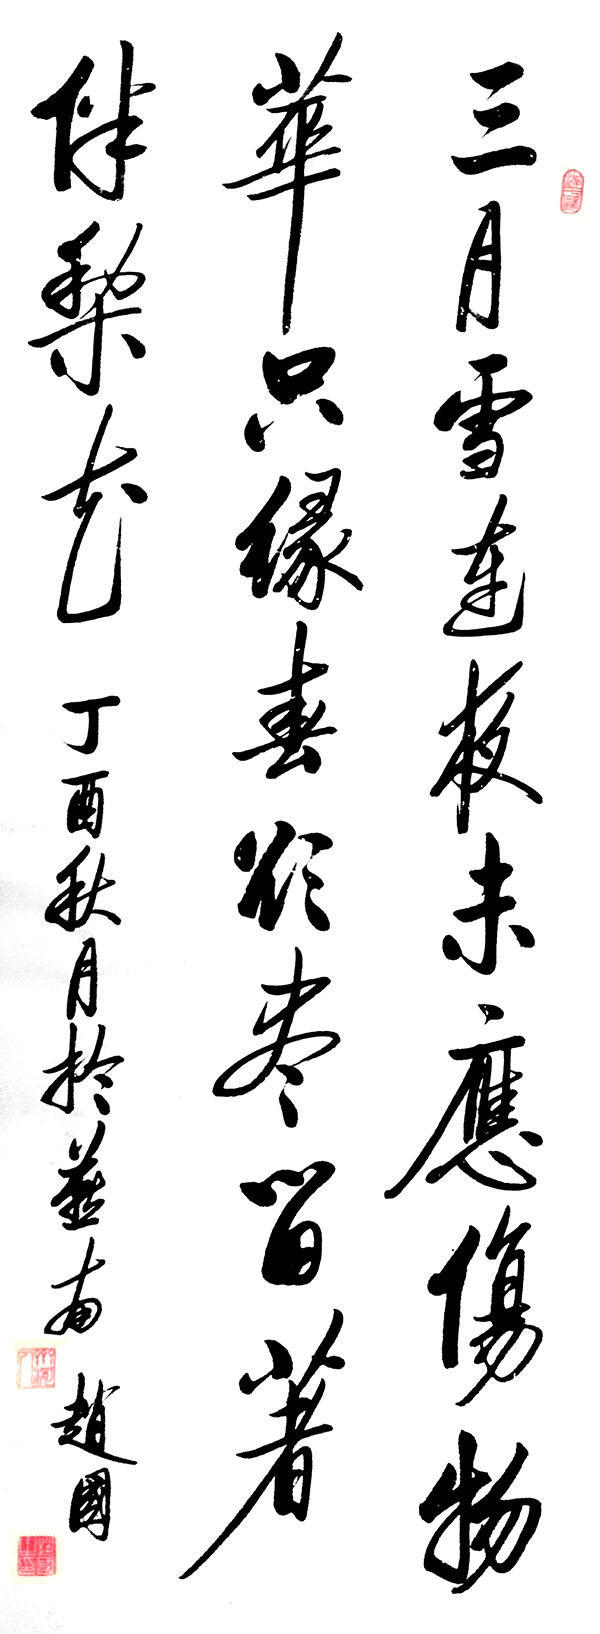 三月雪連夜未應傷物
華只緣春欲盡留著
伴梨花 丁酉秋月於燕南 趙國